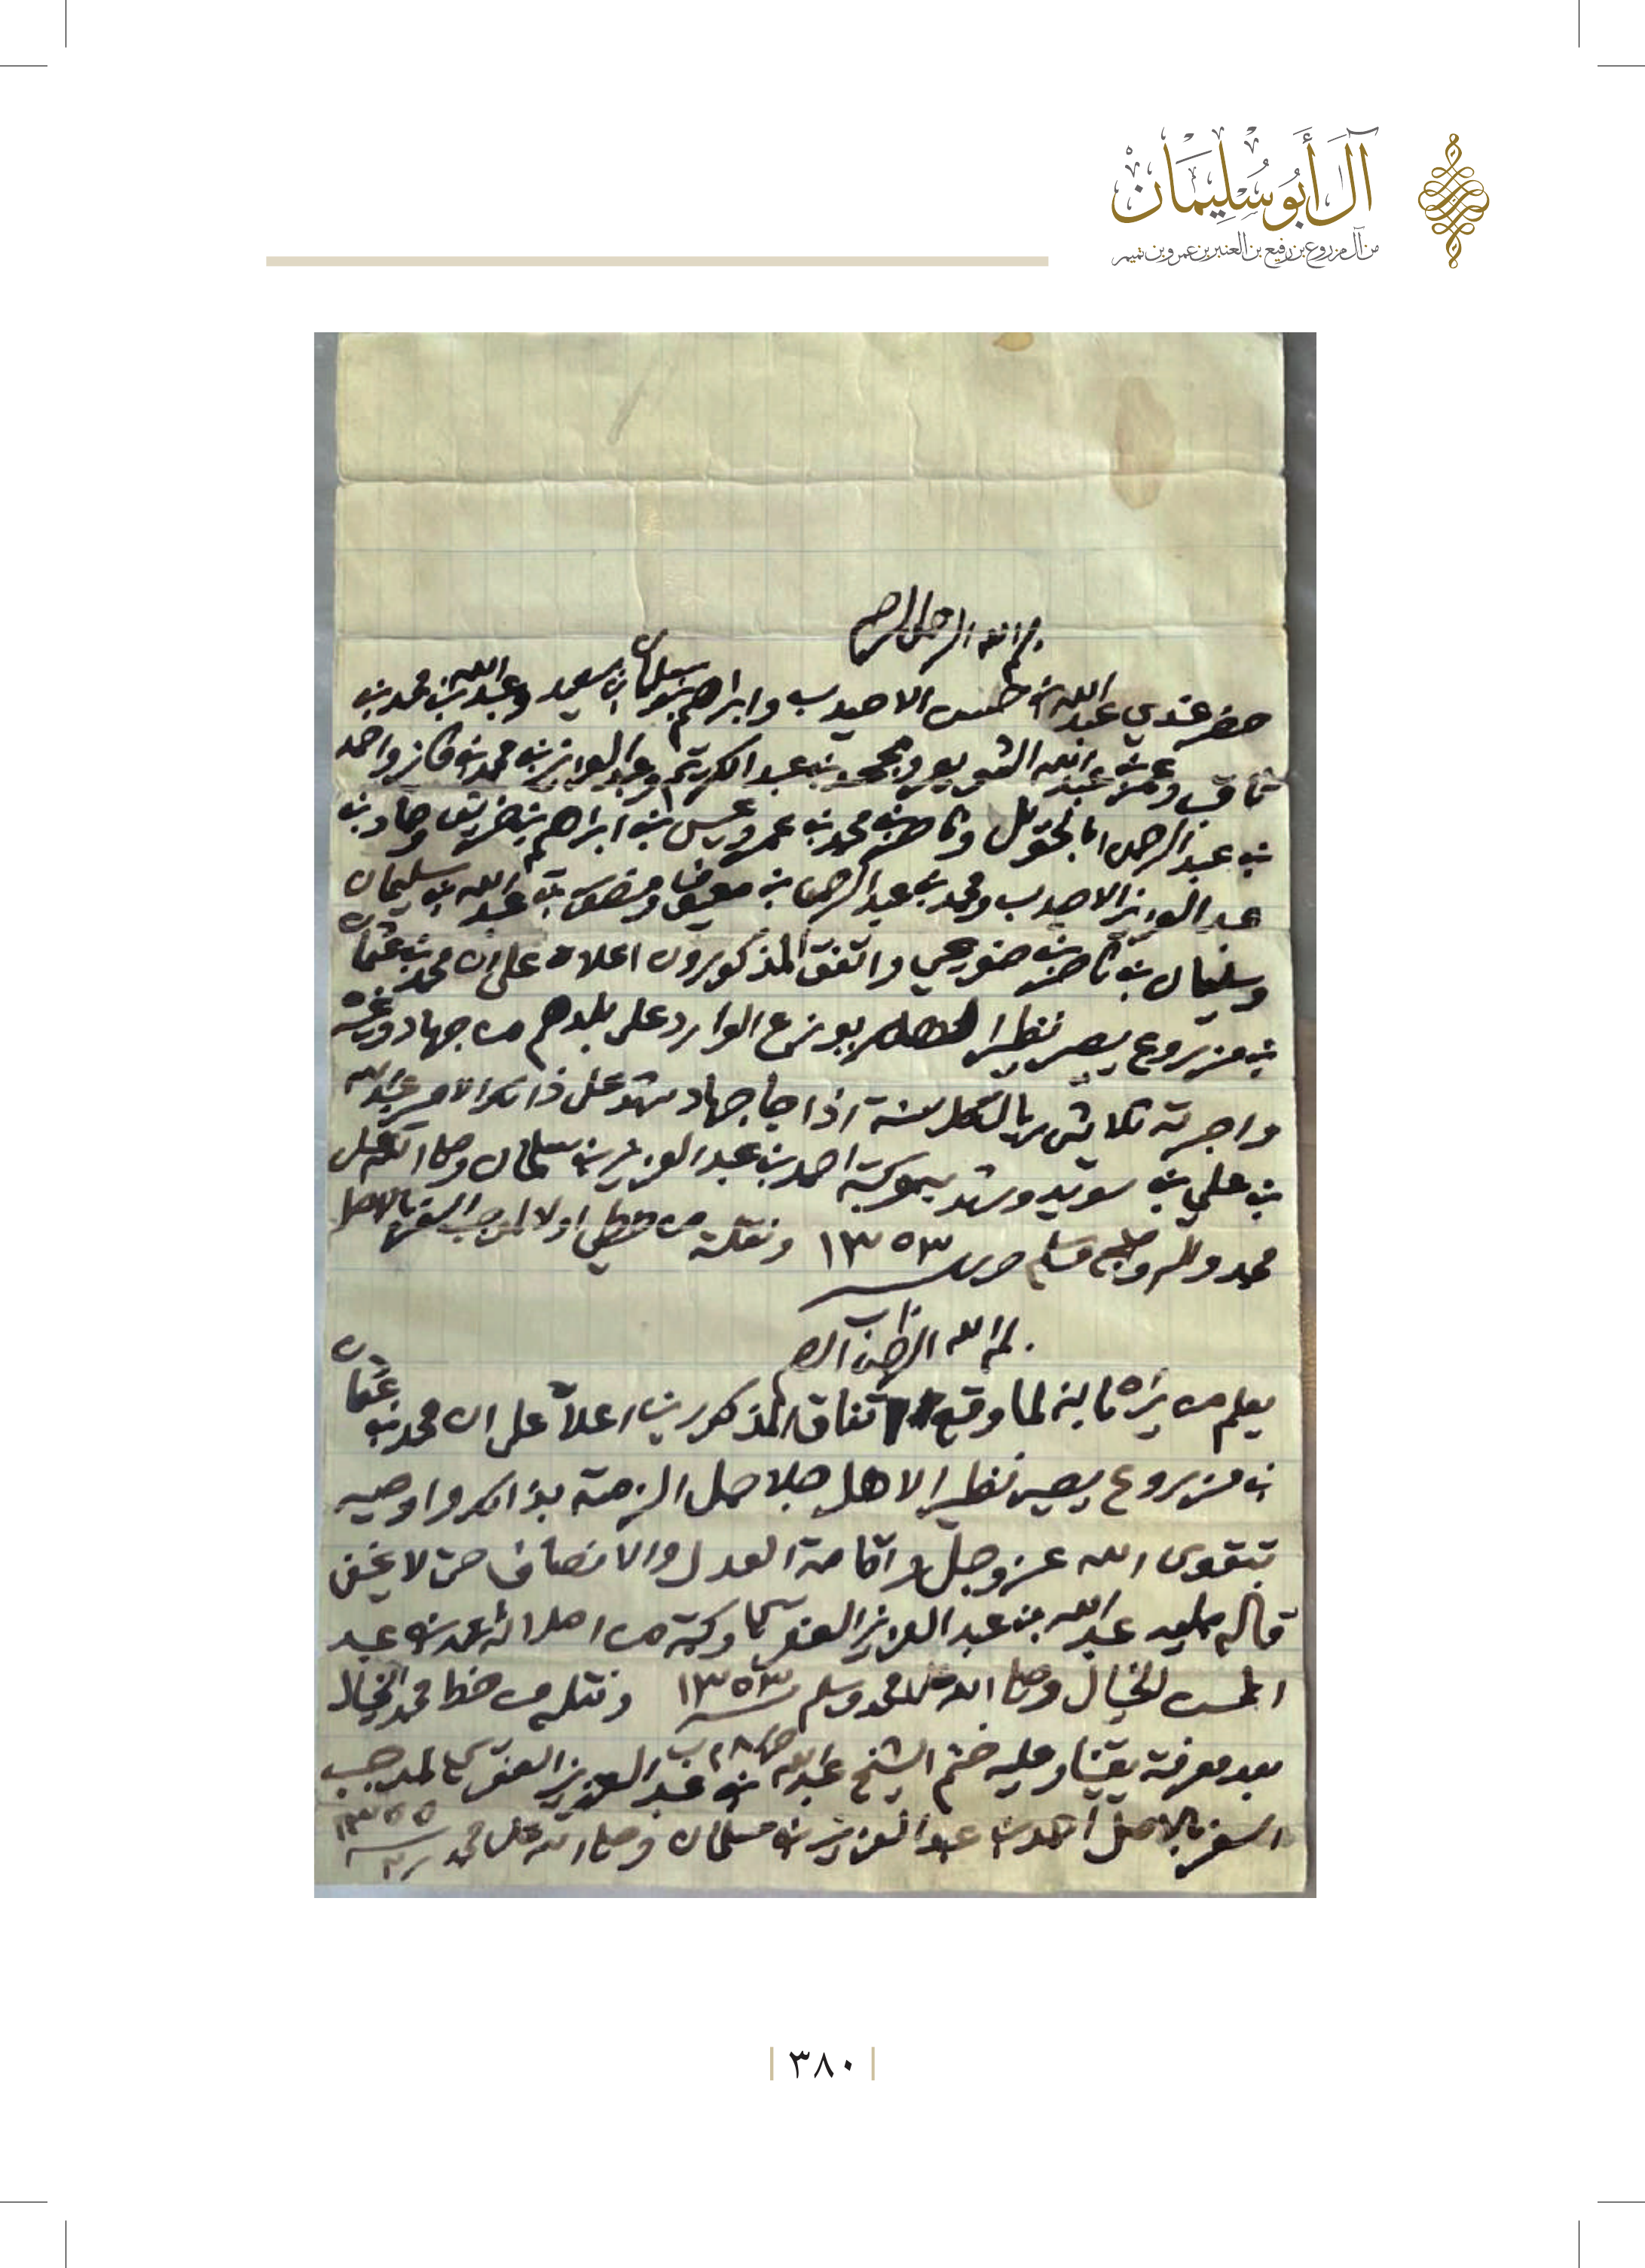 آل أبو سليمان
من آل مزروع بن رفيع بن العنبر بن عمرو بن تميم
بسم الله الرحمن الرحيم
حضر عندي عبدالله بن حسن الاحيدب وابراهيم بن سليمان بن سعيد وعبدالله بن محمد بن
ثاقب وعمر بن عبدالله الشويعر ومحمد بن عبدالكريم وعبدالعزيز بن محمد بن فايز واحمد
بن عبدالرحمن ابالخيل وناصر بن محمد بن عمر وعيسى بن ابراهيم بن وحماد بن
عبدالعزيز الاحيدب ومحمد بن عبدالرحمن بن معيوف ومنصور بن عبدالله بن سليمان
وسليمان بن ناصر بن ضويحي واتفق المذكورون اعلاه على ان محمد بن عثمان
بن مزروع يصير نظير يوزع الوارد على بلدهم من جهاد وغيره
واجرته ثلاثين ريال كل سنة اذا جا جهاد شهد على ذالك الامير عبدالله
بن علي بن سويد وشهد به وكتبه احمد بن عبدالعزيز بن سلمان وصلى الله على
محمد واله وصحبه وسلم ١٣٥٣ ونقله من خطي اولا لموجب السفر بالاصل
بسم الله الرحمن الرحيم
يعلم من يراه بانه لما وقع اتفاق المذكورين اعلاه على ان محمد بن عثمان
بن مزروع يصير نظير لاهل جلاجل الزمته بذالك واوصيه
بتقوى الله عز وجل واقامة العدل والانصاف حتى لا يخفى
قاله ممليه عبدالله بن عبدالعزيز العنقري وكتبه من املائه محمد بن عبد
المحسن الخيال وصلى الله على محمد وسلم ١٣٥٣ ونقله من خط محمد الخيال
بعد معرفته يقينا وعليه ختم الشيخ عبدالله بن عبدالعزيز العنقري لموجب
السفر بالاصل احمد بن عبدالعزيز بن سلمان وصلى الله على محمد
٣٨٠